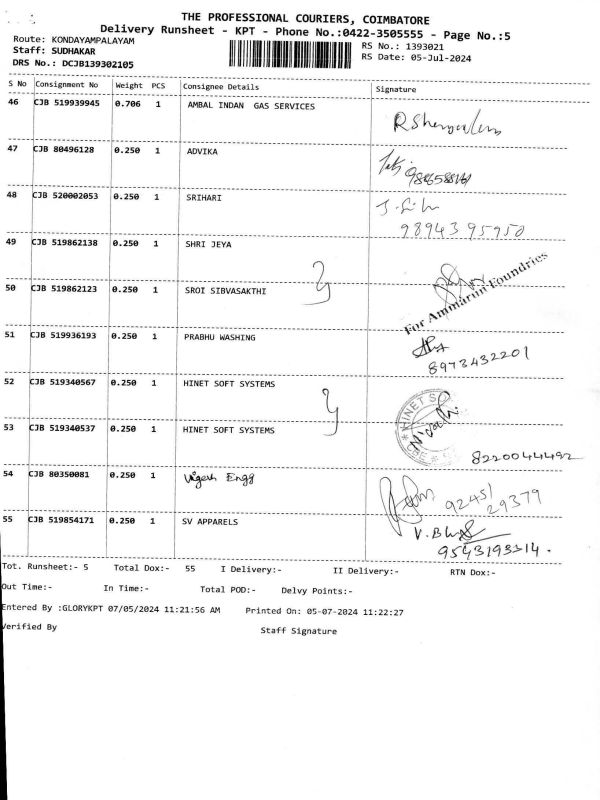 THE PROFESSIONAL COURIERS, COIMBATORE
Delivery Runsheet - KPT - Phone No.:0422-3505555 - Page No.:5
Route: KONDAYAMPALAYAM
RS No.: 1393021
Staff: SUDHAKAR
RS Date: 05-Jul-2024
DRS No.: DCJB139302105
S No Consignment No Weight PCS Consignee Details Signature
46 CJB 519939945 0.706 1 AMBAL INDAN GAS SERVICES
47 CJB 80496128 0.250 1 ADVIKA
48 CJB 520002053 0.250 1 SRIHARI
9894395950
49 CJB 519862138 0.250 1 SHRI JEYA
For Ammarun Foundries
50 CJB 519862123 0.250 1 SROI SIBVASAKTHI
51 CJB 519936193 0.250 1 PRABHU WASHING
8973432201
52 CJB 519340567 0.250 1 HINET SOFT SYSTEMS
53 CJB 519340537 0.250 1 HINET SOFT SYSTEMS
8220044492
54 CJB 80350081 0.250 1 Vignesh Engg
92451
29379
55 CJB 519854171 0.250 1 SV APPARELS
9543193314.
Tot. Runsheet:- 5 Total Dox:- 55 I Delivery:- II Delivery:- RTN Dox:-
Out Time:- In Time:- Total POD:- Delvy Points:-
Entered By :GLORYKPT 07/05/2024 11:21:56 AM Printed On: 05-07-2024 11:22:27
Verified By Staff Signature